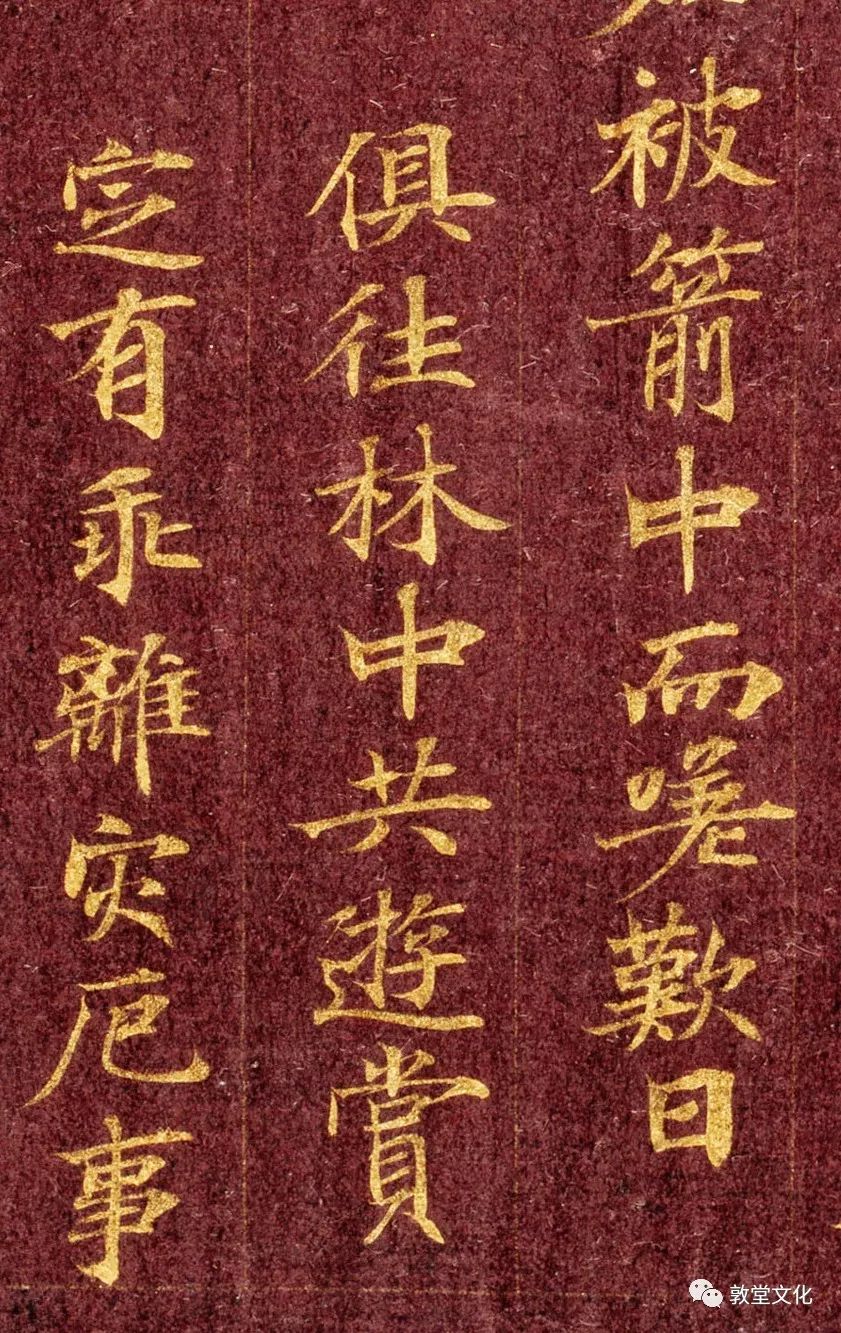 被箭中而嗟歎曰
俱往林中共遊賞
定有乖離灾厄事
敦堂文化